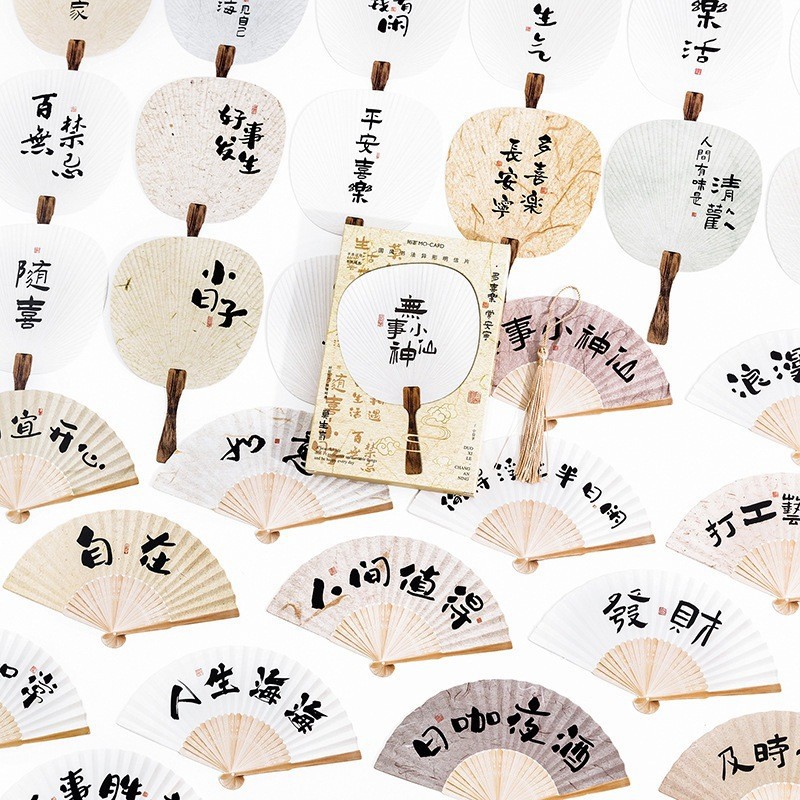 家
海
见自己
有闲
生气
樂活
百無禁忌
好事发生
平安喜樂
多喜樂
長安寧
人間有味是
清歡
隨喜
小日子
MO·CARD
多喜樂 常安寧
無事小神仙
DUO
XI
LE
CHANG
AN
NING
事小神仙
浪漫
宜开心
如意
浮 半日閒
打工藝
自在
人间值得
發財
人生海海
日咖夜酒
及時
事胜